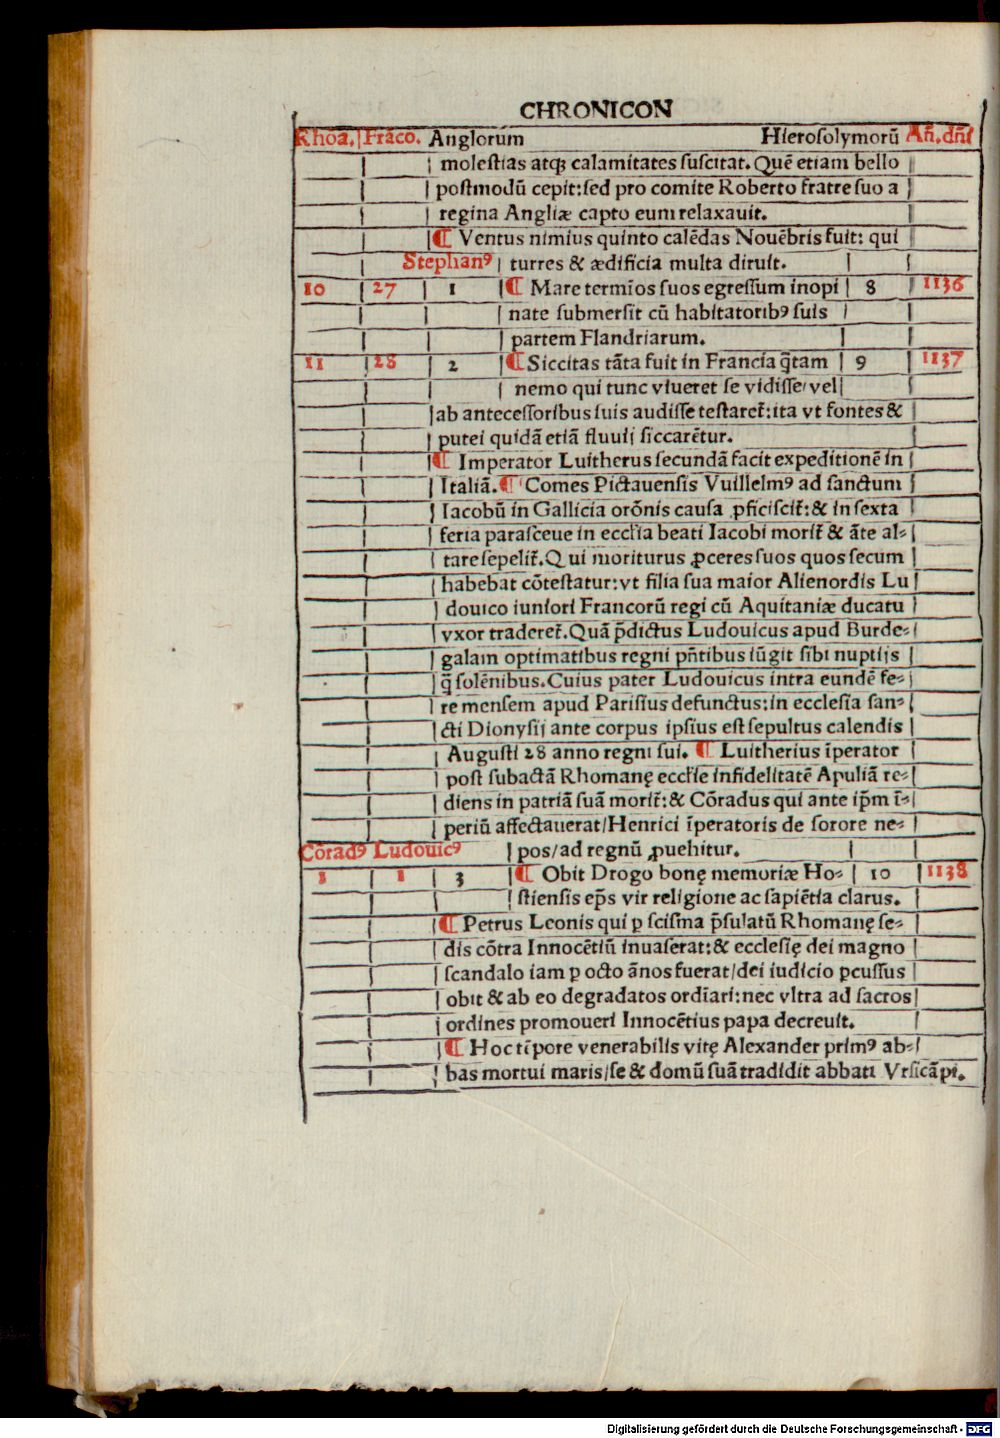 CHRONICON
Rhōa. Frāco. Anglorum Hierosolymorū Añ.dñi
molestias atqꝫ calamitates suscitat. Quē etiam bello
postmodū cepit: sed pro comite Roberto fratre suo a
regina Angliæ capto eum relaxauit.
¶ Ventus nimius quinto calēdas Nouēbris fuit: qui
Stephanꝰ turres & ædificia multa diruit.
10 27 1 ¶ Mare termīos suos egressum inopi 8 1136
nate submersit cū habitatoribꝰ suis
partem Flandriarum.
11 28 2 ¶ Siccitas tāta fuit in Francia q̄tam 9 1137
nemo qui tunc viueret se vidisse/vel
ab antecessoribus suis audisse testaret̄: ita vt fontes &
putei quidā etiā fluuij siccarētur.
¶ Imperator Luitherus secundā facit expeditionē in
Italiā. ¶ Comes Pictauensis Vuillelmꝰ ad sanctum
Iacobū in Gallicia orōnis causa ꝓficiscit̄: & in sexta
feria parasceue in ecclia beati Iacobi morit̄ & āte al⸗
tare sepelit̄. Qui moriturus ꝓceres suos quos secum
habebat cōtestatur: vt filia sua maior Alienordis Lu
douico iuniori Francorū regi cū Aquitaniæ ducatu
vxor traderet̄. Quā p̄dictus Ludouicus apud Burde⸗
galam optimatibus regni pñtibus iūgit sibi nuptijs
q̄ solēnibus. Cuius pater Ludouicus intra eundē fe⸗
re mensem apud Parisius defunctus: in ecclesia san⸗
cti Dionysij ante corpus ipsius est sepultus calendis
Augusti 28 anno regni sui. ¶ Luitherius īperator
post subactā Rhomanę ecclīe infidelitatē Apuliā re⸗
diens in patriā suā morit̄: & Cōradus qui ante ip̄m ī⸗
periū affectauerat/Henrici īperatoris de sorore ne⸗
Cōradꝰ Ludouicꝰ pos/ad regnū ꝓuehitur.
1 1 3 ¶ Obit Drogo bonę memoriæ Ho⸗ 10 1138
stiensis ep̄s vir religione ac sapiētia clarus.
¶ Petrus Leonis qui ꝑ scisma p̄sulatū Rhomanę se⸗
dis cōtra Innocētiū inuaserat: & ecclesię dei magno
scandalo iam ꝑ octo ānos fuerat/dei iudicio ꝑcussus
obit & ab eo degradatos ordīari: nec vltra ad sacros
ordines promoueri Innocētius papa decreuit.
¶ Hoc tīpore venerabilis vitę Alexander primꝰ ab⸗
bas mortui maris/se & domū suā tradidit abbati Vrsicāpi.
Digitalisierung gefördert durch die Deutsche Forschungsgemeinschaft - DFG